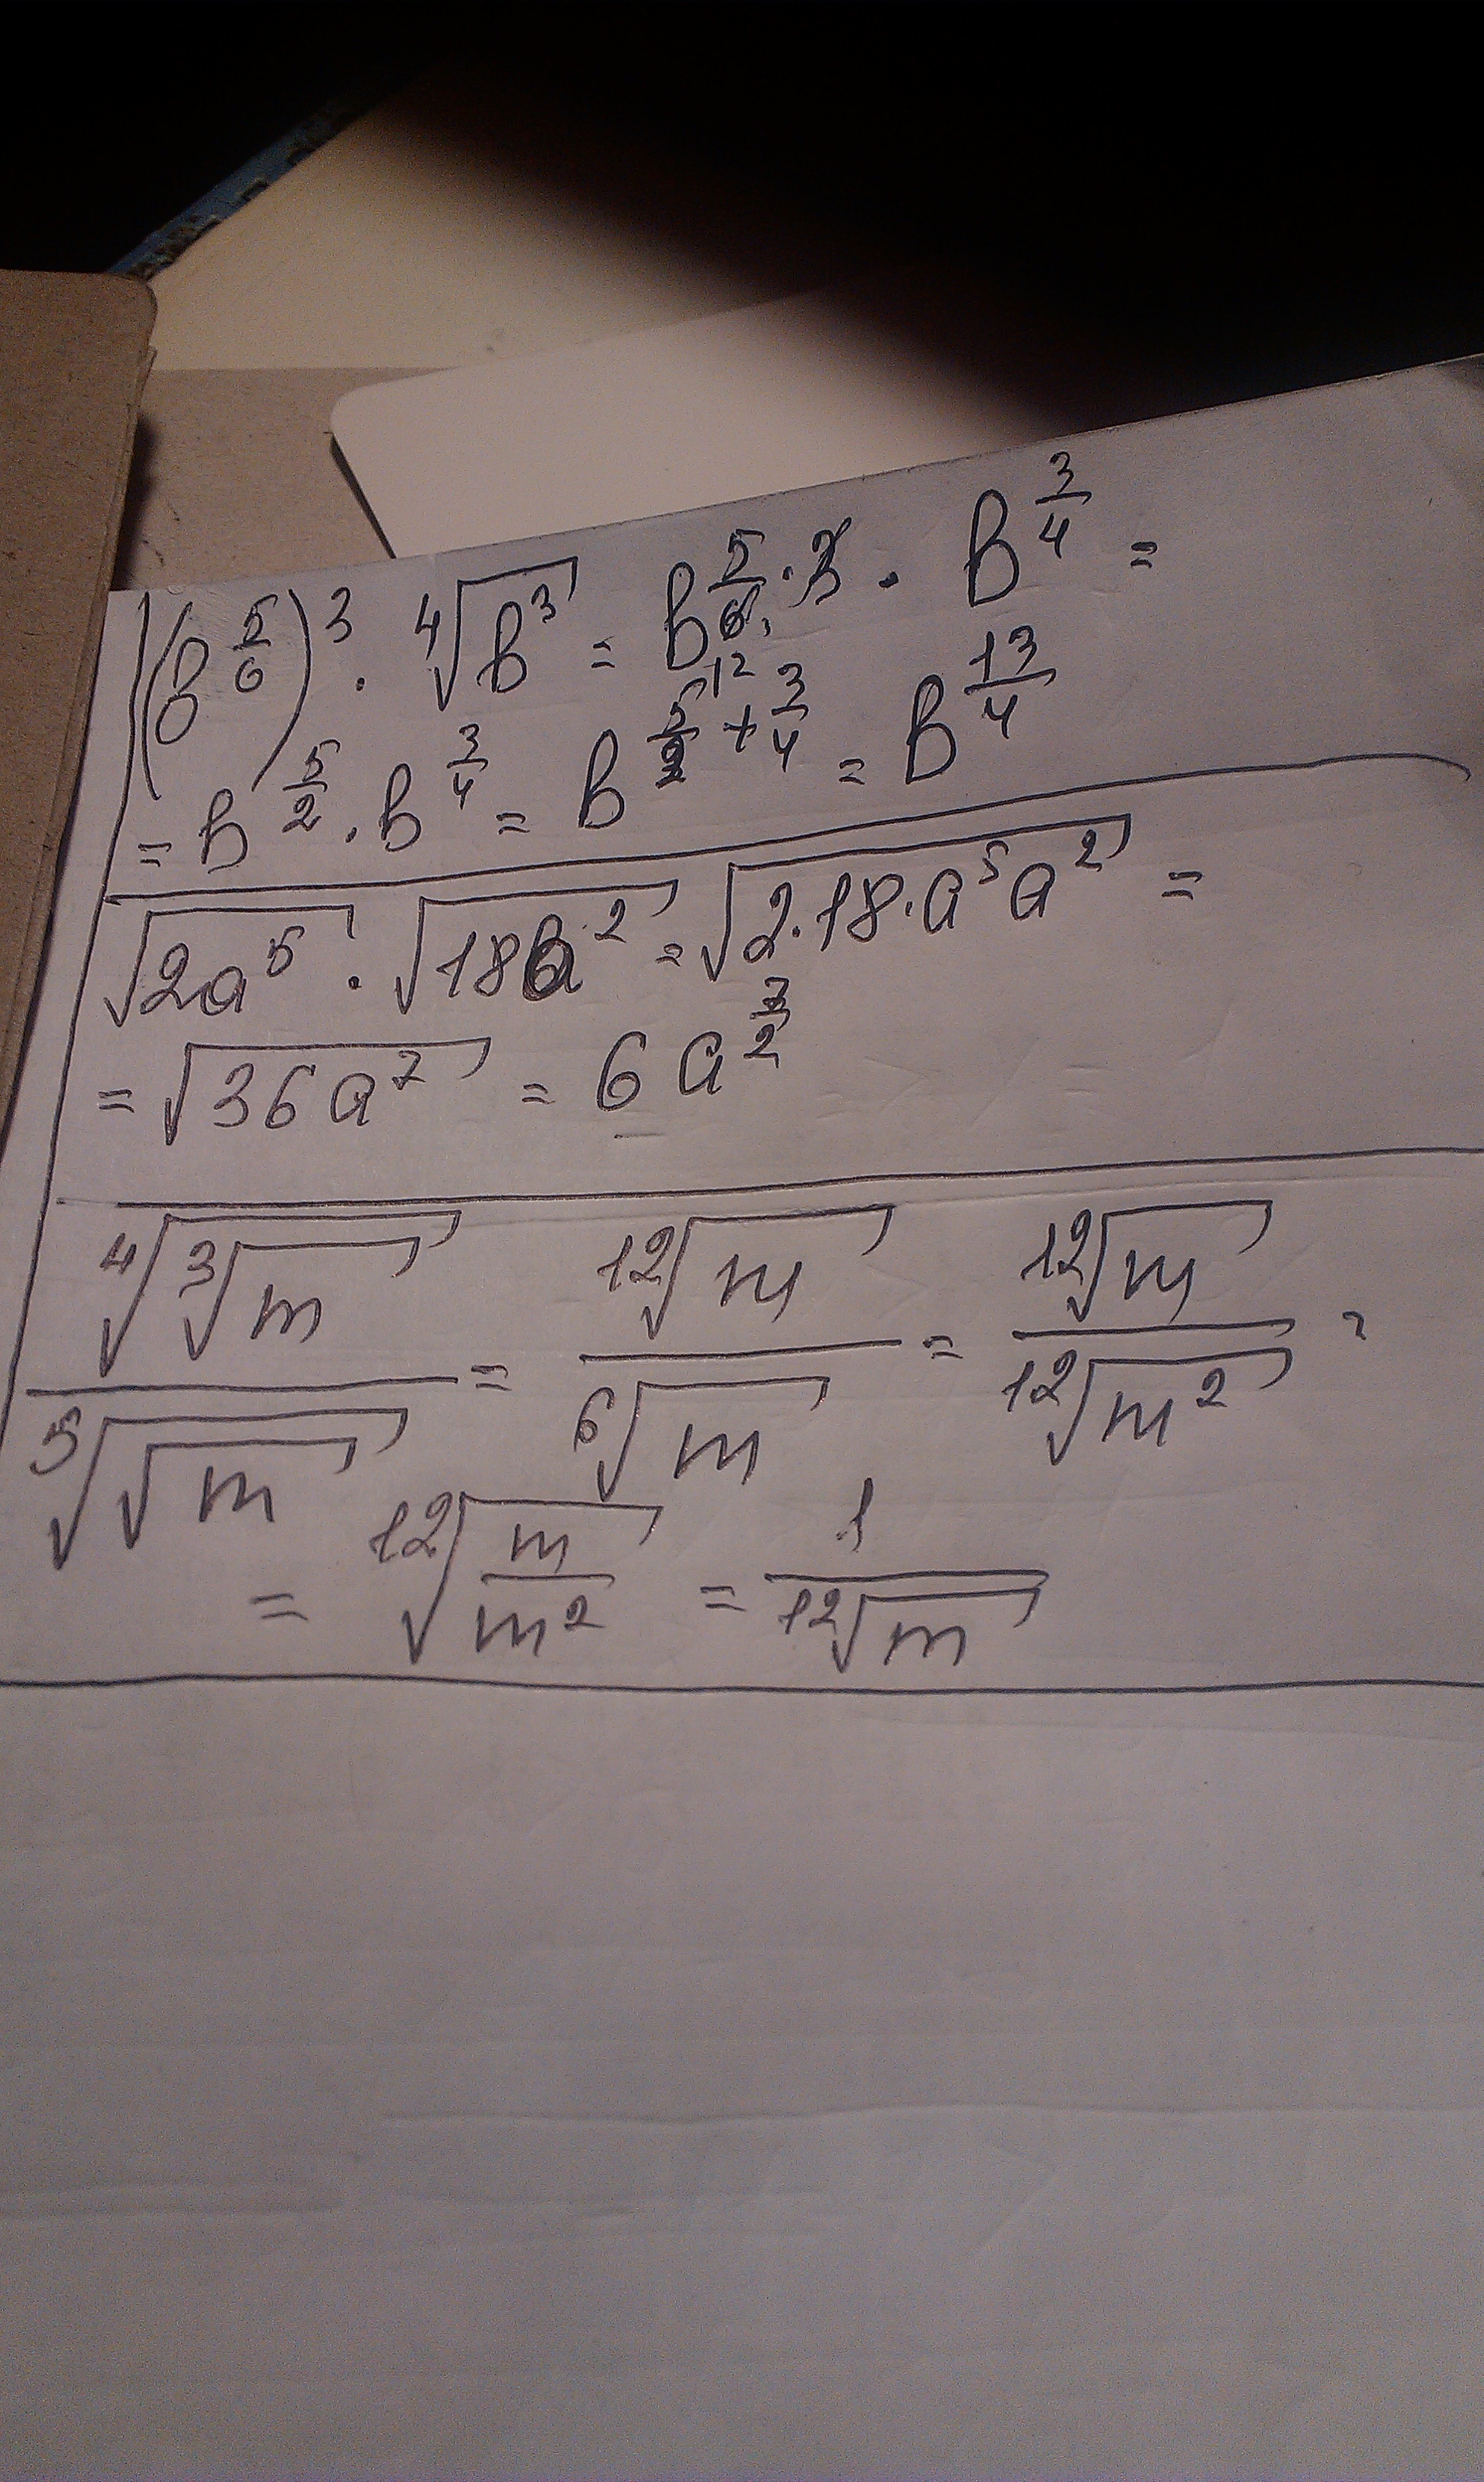 (b^(5/6))^3 · ⁴√(b^3) = b^(5/6 · 3) · b^(3/4) =
= b^(5/2) · b^(3/4) = b^(5/2 + 3/4) = b^(13/4)
√(2a^5) · √(18a^2) = √(2·18·a^5 a^2) =
= √(36a^7) = 6a^(7/2)
⁴√(³√m) / ⁵√(√m) = ¹²√m / ⁶√m = ¹²√m / ¹²√(m^2) =
= ¹²√(m/m^2) = 1 / ¹²√m